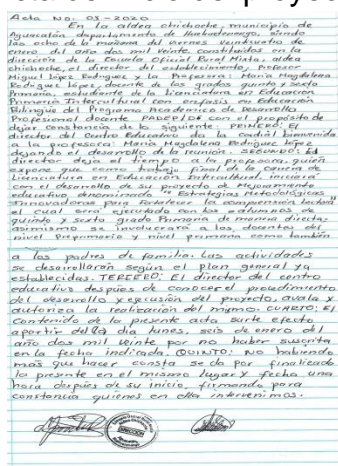 Acta No. 03-2020
En la aldea chichoche, municipio de
Aguacatán departamento de Huehuetenango, siendo
las ocho de la mañana del viernes veinticuatro de
enero del año dos mil veinte, constituidos en la
dirección de la Escuela Oficial Rural Mixta, aldea
chichoche, el director del establecimiento, Profesor
Miguel López Rodriguez y la Profesora: María Magdalena
Rodriguez López, docente de los grados quinto y sexto
Primaria, estudiante de la Licenciatura en Educación
Primaria Intercultural con énfasis en Educación
Bilingüe del Programa Académico de Desarrollo
Profesional docente PADEP/D# con el propósito de
dejar constancia de lo siguiente: PRIMERO: El
director del Centro Educativo da la cordial bienvenida
a la profesora: María Magdalena Rodriguez López
dejando el desarrollo de la reunión. SEGUNDO: El
director deja el tiempo a la profesora, quien
expone que como trabajo final de la carrera de
Licenciatura en Educación Intercultural, iniciará
con el desarrollo de su proyecto de Mejoramiento
educativo denominado "Estrategias Metodológicas
Innovadoras para fortalecer la comprensión lectora"
el cual será ejecutado con los alumnos de
quinto y sexto grado Primaria de manera directa,
asimismo se involucrará a los docentes del
nivel Preprimaria y nivel primaria como también
a los padres de familia. Las actividades
se desarrollarán según el plan general ya
establecidas. TERCERO: El director del centro
educativo después de conocer el procedimiento
del desarrollo y ejecución del proyecto, avala y
autoriza la realización del mismo. CUARTO: El
Contenido de la presente acta surte efecto
apartir del día lunes, seis de enero del
año dos mil veinte por no haber suscrita
en la fecha indicada. QUINTO: No habiendo
más que hacer consta se da por finalizado
la presente en el mismo lugar y fecha una
hora después de su inicio, firmando para
constancia quienes en ella intervenimos.
DIRECCIÓN